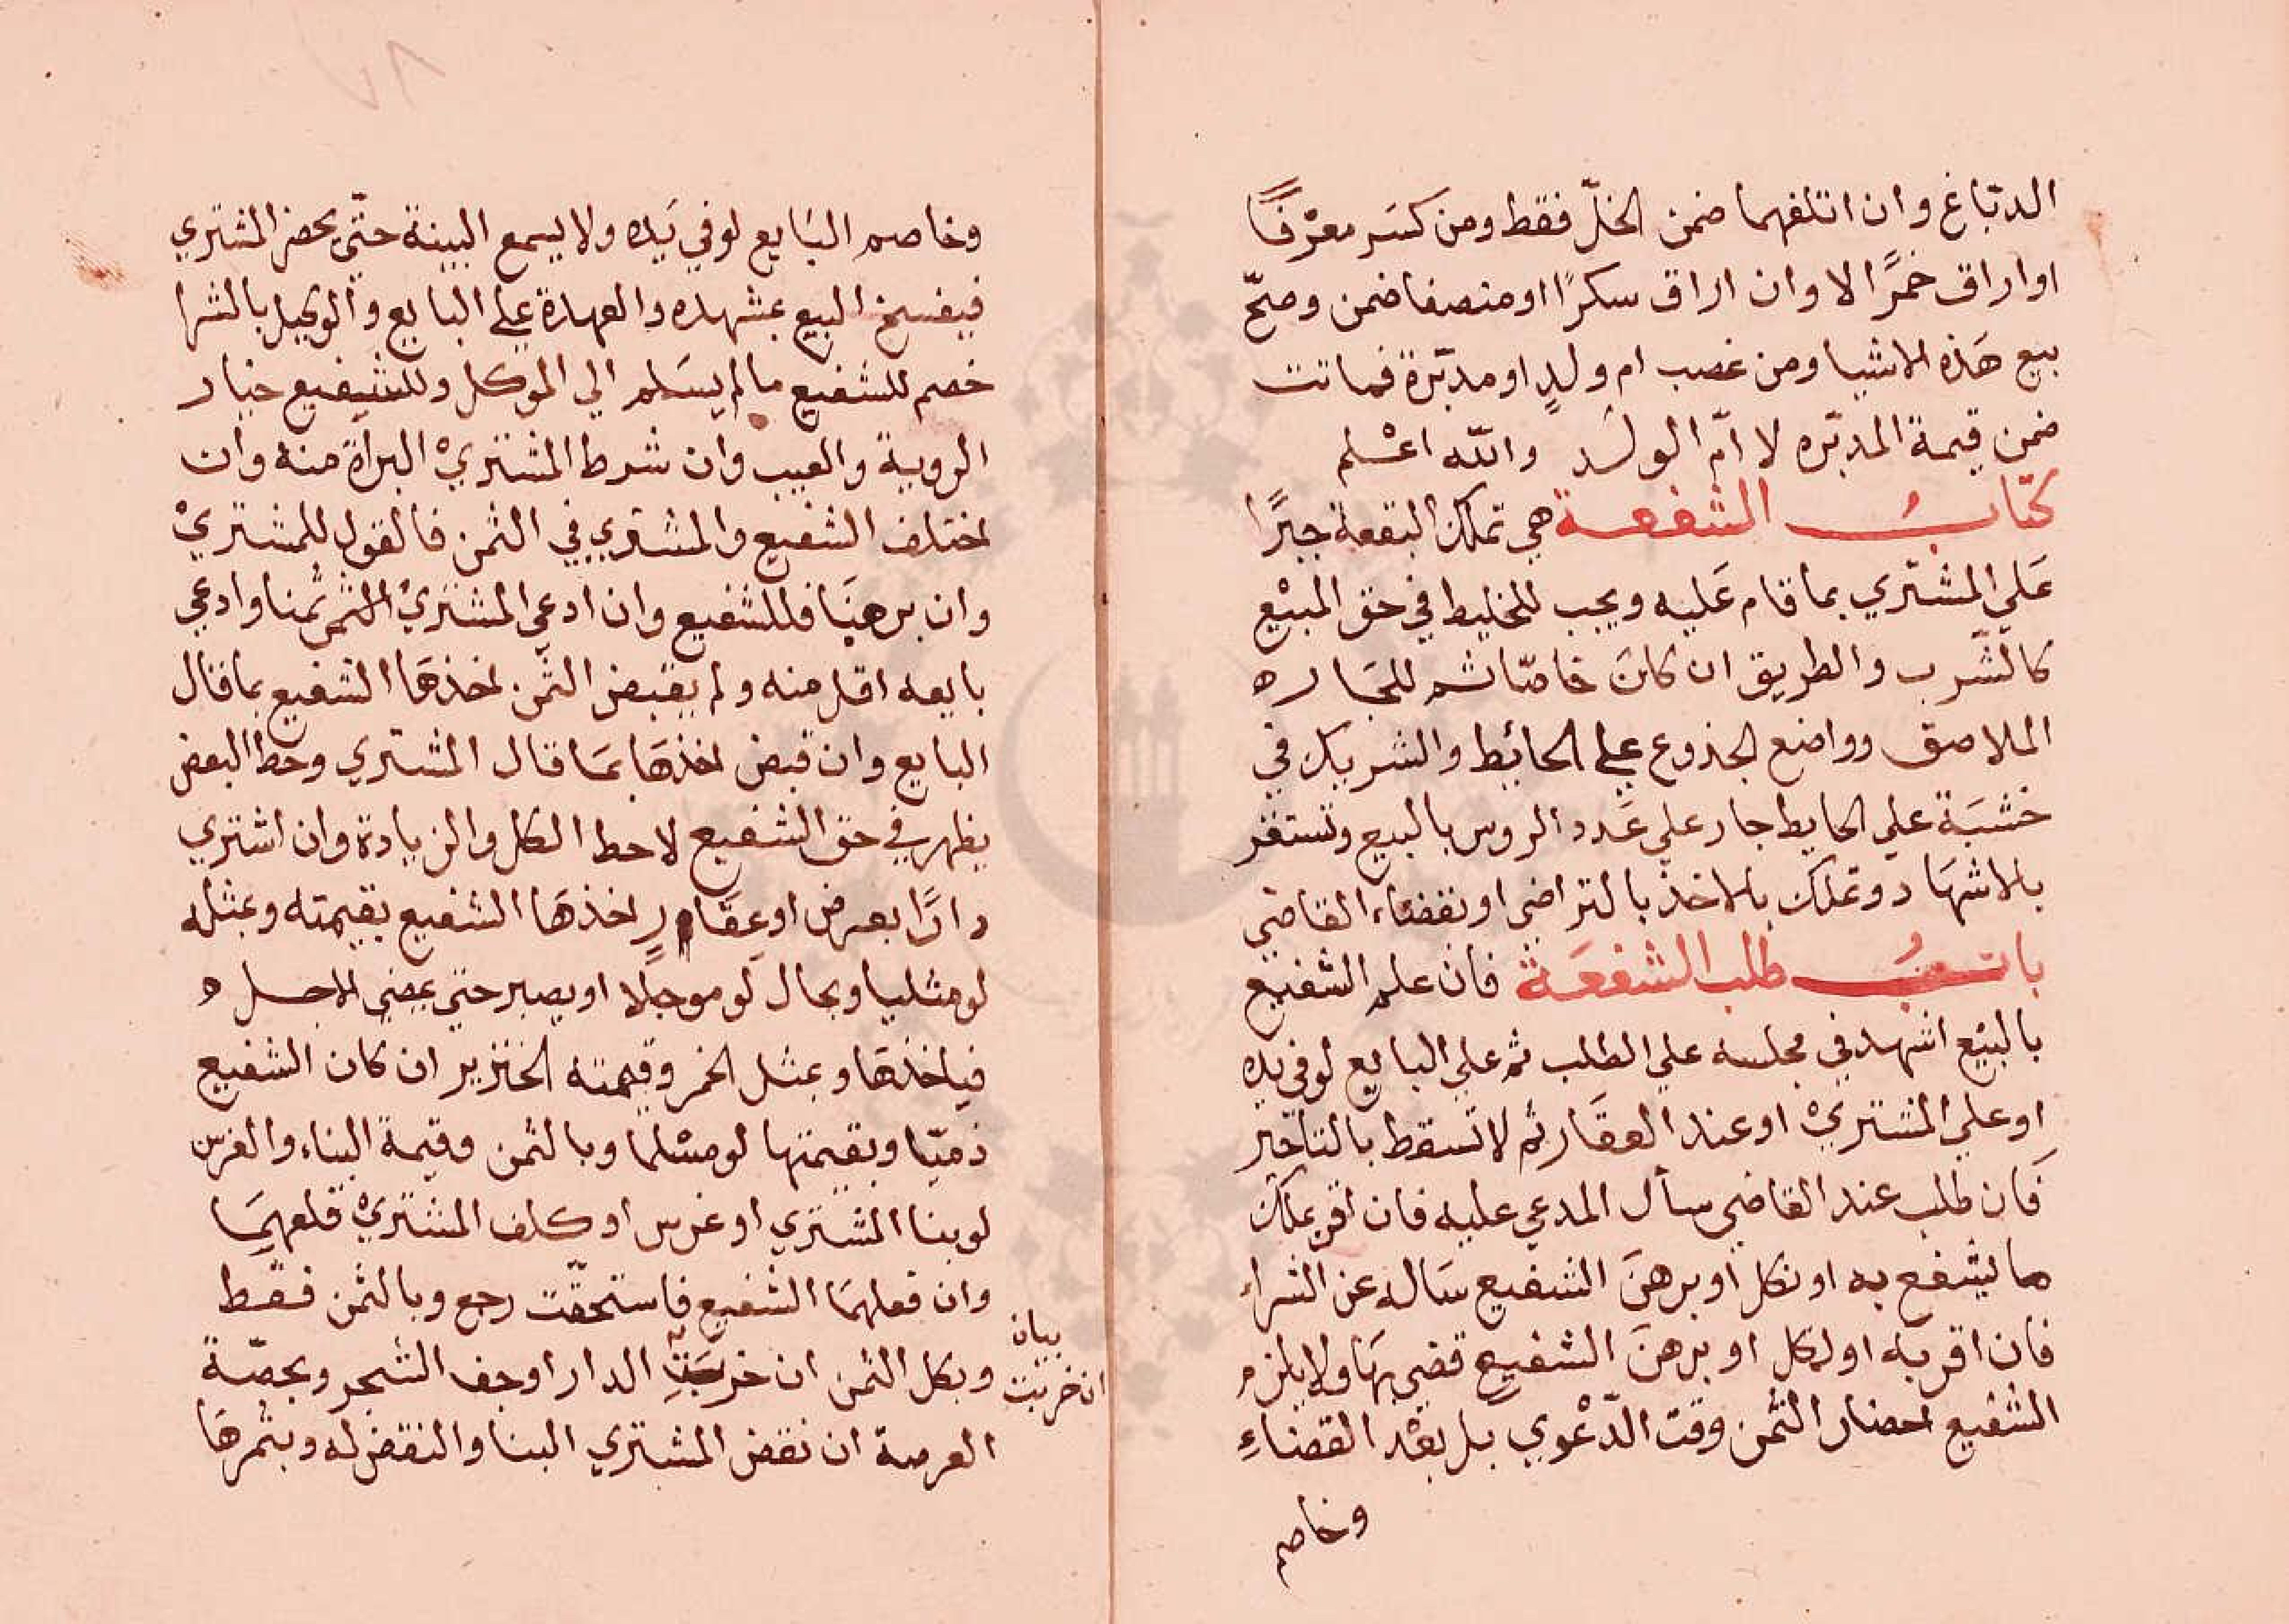 الدبّاغ وان اتلفهما ضمن الخلّ فقط ومن كسَر معزفًا
او اراق خمرًا لا وان اراق سكرًا او منصفا ضمن وصحّ
بيع هَذه الاشيا ومن غصب ام ولدٍ او مدبّرة فماتت
ضمن قيمة المدبّره لا امّ الولد والله اعلم
كتاب الشفعة هي تملك البقعة جبرًا
عَلي المشتري بما قام عَليه ويجب للخليط في حق المبيع
كالشّرب والطريق ان كانَ خاصّا ثم للجَار ه
الملاصق وواضع الجذوع علي الحائط والشريك في
خشبَة علي الحايط جار علي عَدد الروس بالبيع وتستقر
بالاشهَاد وتملك بالاخذ بالتراضي او بقضاء القاضي
باب طلب الشفعَة فان علم الشفيع
بالبيع اشهد في مجلسه علي الطلب ثم علي البايع لو في يده
او علي المشتري او عند العقَار ثم لا تسقط بالتاخير
فَان طلب عند القاضي سأل المدعي عليه فان اقر بملك
ما يشفع به او نكل او برهنَ الشفيع سَاله عن الشراء
فان اقر به او نكل او برهنَ الشفيع قضي بهَا ولا يلزم
الشفيع احضار الثمن وقت الدّعْوي بل بعْد القضاءِ
وخاصم
وخاصم البَايع لو في يَده ولا يسمع البينة حتّي يحضر المشتري
فيفسخ البيع بمشهده والعهدة علي البايع والوكيل بالشرا
خصم للشفيع ما لم يسَلم الي الموكل وللشفيع خيار
الروية والعيب وان شرط المشتريْ البرأة منه وان
اختلف الشفيع والمشتري في الثمن فالقول للمشتريْ
وان برهنَا فللشفيع وان ادعي المشتريْ الثمن ثمنا وادعي
بايعه اقل منه ولم يقبض الثمن اخذهَا الشفيع بما قال
البايع وان قبض اخذهَا بمَا قال المشتري وحط البعض
يظهر في حق الشفيع لا حط الكل والزيادة وان اشتري
دارًا بعرض او عِقَار اخذهَا الشفيع بقيمته وبمثله
لو مثليا وبحال لو موجلا او يصبر حتي يمضي الاجل ه
فياخذهَا وبمثل الخمر وقيمته الخنزير ان كان الشفيع
ذميّا وبقيمتها لو مسْلما وبالثمن وقيمة البناء والغرس
لو بنا المشتري او غرس او كلف المشتريْ قلعهمَا
وان قعلهمَا الشفيع فاستحقّت رجع وبالثمن فقط
وبكل الثمن ان خربت الدار او جف الشجر وبحصّة
بيان
ان خربت
العرصة ان نقض المشتري البنا والنقض له وبثمرهَا